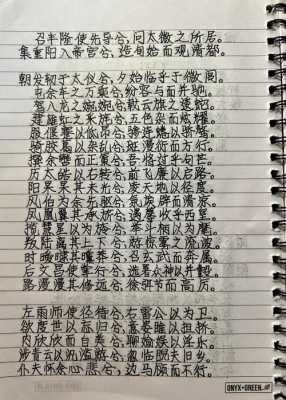 召丰隆使先导兮，问太微之所居。
集重阳入帝宫兮，造旬始而观清都。
朝发轫于太仪兮，夕始临乎于微闾。
屯余车之万乘兮，纷容与而并驰。
驾八龙之婉婉兮，载云旗之逶蛇。
建雄虹之采旄兮，五色杂而炫耀。
服偃蹇以低昂兮，骖连蜷以骄骜。
骑胶葛以杂乱兮，斑漫衍而方行。
撰余辔而正策兮，吾将过乎句芒。
历太皓以右转兮，前飞廉以启路。
阳杲杲其未光兮，凌天地以径度。
风伯为余先驱兮，氛埃辟而清凉。
凤凰翼其承旂兮，遇蓐收乎西皇。
揽慧星以为旍兮，举斗柄以为麾。
叛陆离其上下兮，游惊雾之流波。
时暧曃其曭莽兮，召玄武而奔属。
后文昌使掌行兮，选署众神以并轂。
路漫漫其修远兮，徐弭节而高厉。
左雨师使径待兮，右雷公以为卫。
欲度世以忘归兮，意姿睢以担挢。
内欣欣而自美兮，聊媮娱以淫乐。
涉青云以泛滥游兮，忽临睨夫旧乡。
仆夫怀余心悲兮，边马顾而不行。
ONYX+GREEN